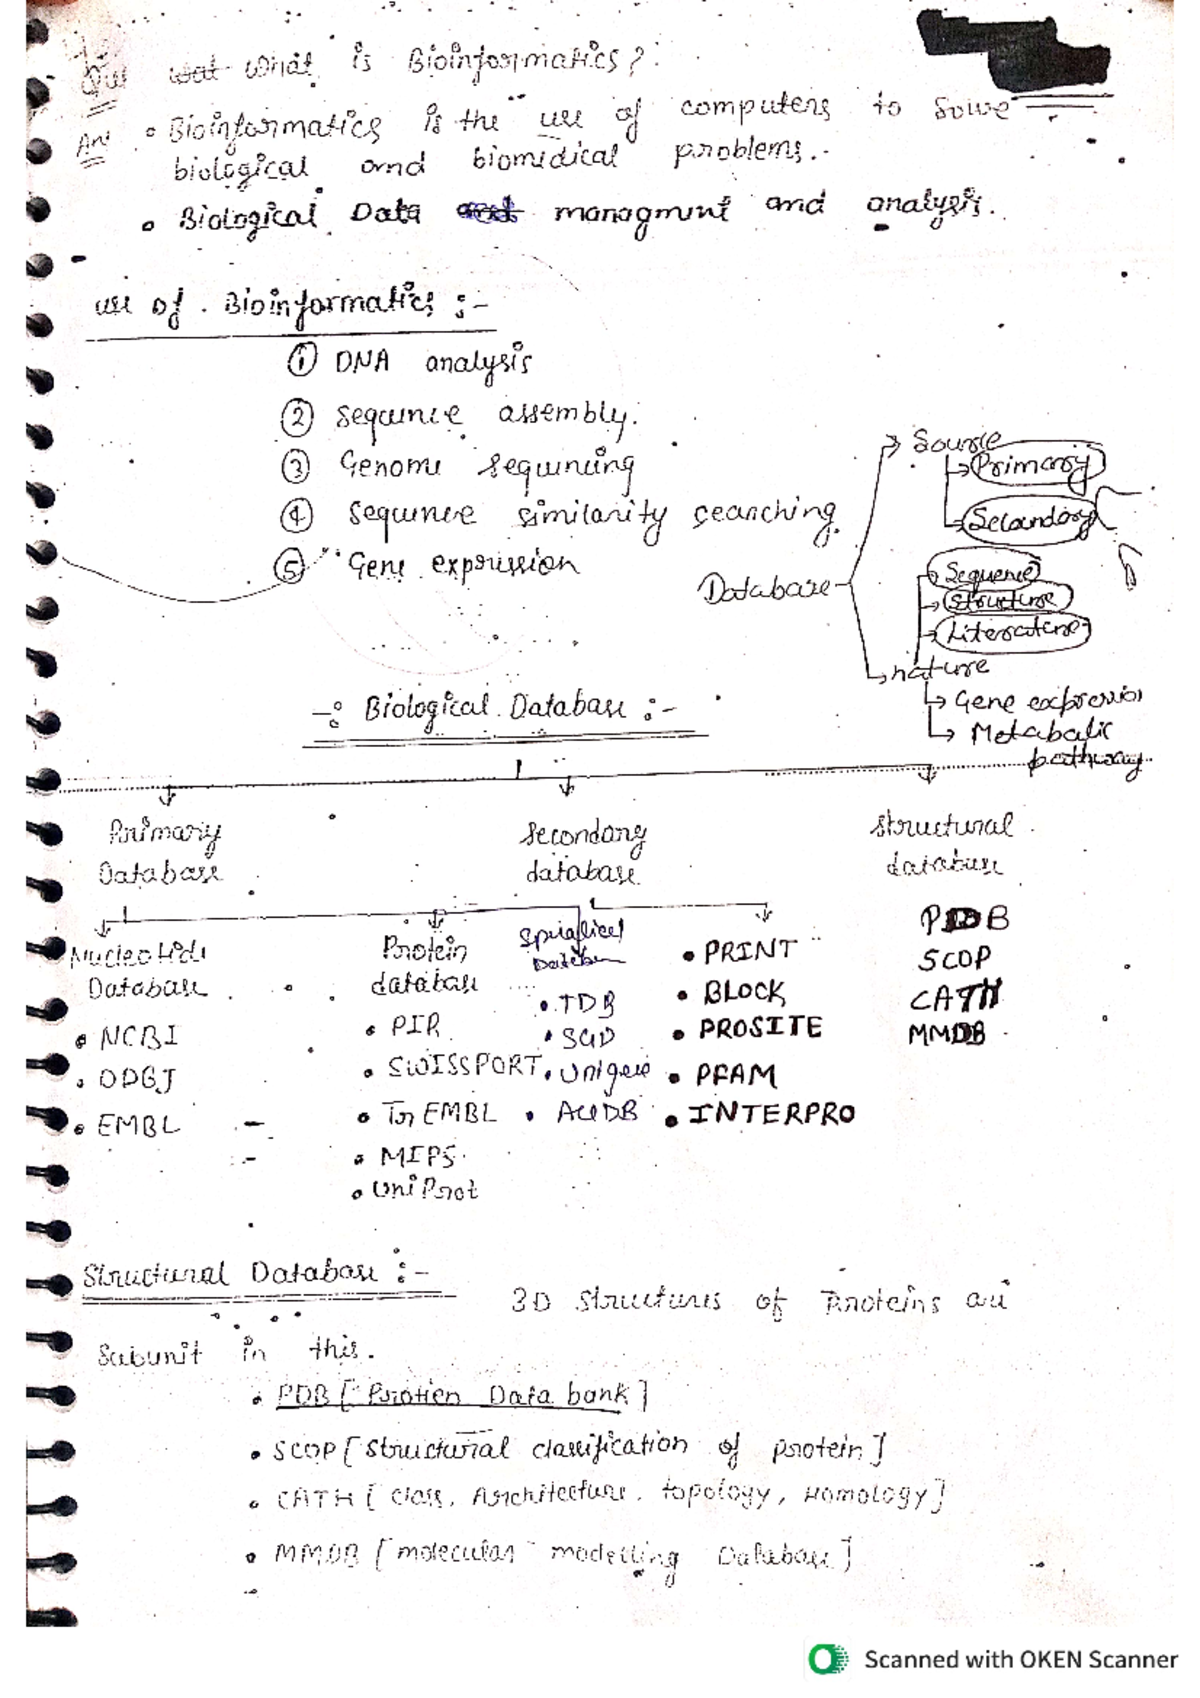 Que What is Bioinformatics?
Ans • Bioinformatics is the use of computers to solve
biological and biomidical problems.
• Biological Data managment and analysis.
use of Bioinformatics :-
① DNA analysis
② sequence assembly.
③ Genome sequencing
④ sequence similarity searching
⑤ Gene expression
Database
→ Source
→ Primary
→ Secondary
→ Sequence
→ Structure
→ Literature
→ nature
→ Gene expression
→ Metabalic
pathway
-: Biological Database :-
Primary
Database
Secondary
database
structural
database
Nucleotide
Database
• NCBI
• DDBJ
• EMBL
Protein
database
• PIR
• SWISSPORT
• TrEMBL
• MIPS
• UniProt
• TDB
• SGD
• Unigene
• ACeDB
• PRINT
• BLOCK
• PROSITE
• PFAM
• INTERPRO
PDB
SCOP
CATH
MMDB
Structural Database :-
3D structures of Proteins are
Subunit in this.
• PDB [Protien Data bank]
• SCOP [structural classification of protein]
• CATH [class, Architecture, topology, Homology]
• MMDB [molecular modelling Database]
Scanned with OKEN Scanner